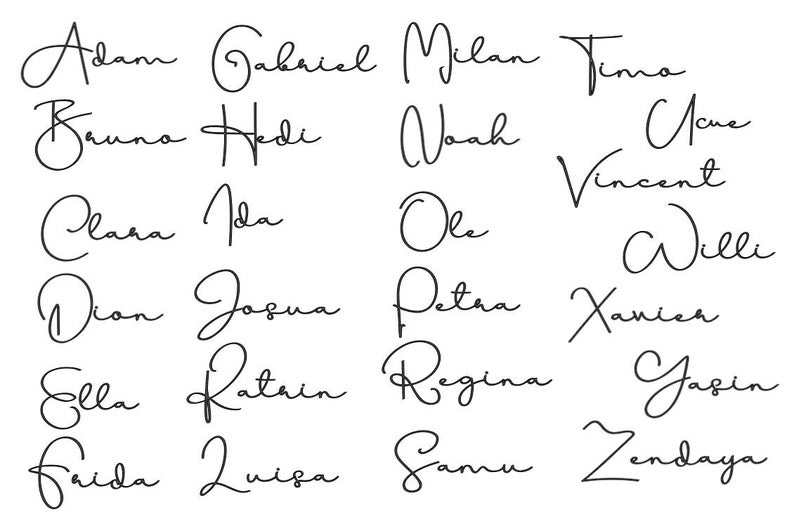 Adam
Bruno
Clara
Dion
Ella
Frida
Gabriel
Hedi
Ida
Josua
Katrin
Luisa
Milan
Noah
Ole
Petra
Regina
Samu
Timo
Ucue
Vincent
Willi
Xavier
Yasin
Zendaya